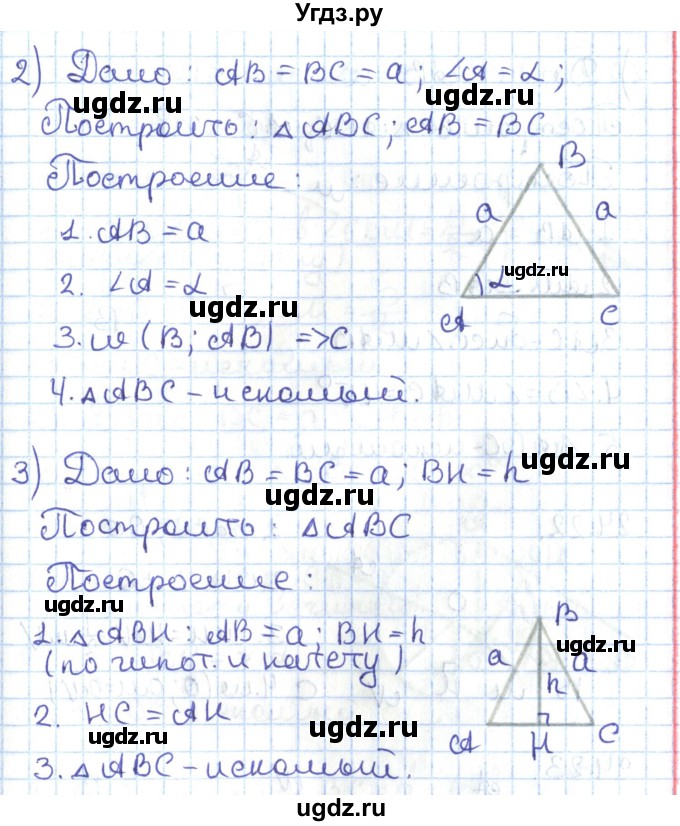 Угдз.ру
2) Дано: AB = BC = a; ∠A = α;
ugdz.ru ugdz.ru
Построить: △ABC; AB = BC
Построение:
B
1. AB = a
a a
2. ∠A = α
α. ugdz.ru
ugdz.ru
A C
3. ω (B; AB) => C
4. △ABC – искомый.
3) Дано: AB = BC = a; BH = h
ugdz.ru
ugdz.ru
Построить: △ABC
Построение:
ugdz.ru
B
1. △ABH: AB = a; BH = h
ugdz.ru
(по гипот. и катету)
a h a
2. HC = AH
ugdz.ru ugdz.ru
A H C
3. △ABC – искомый.
ugdz.ru
ugdz.ru